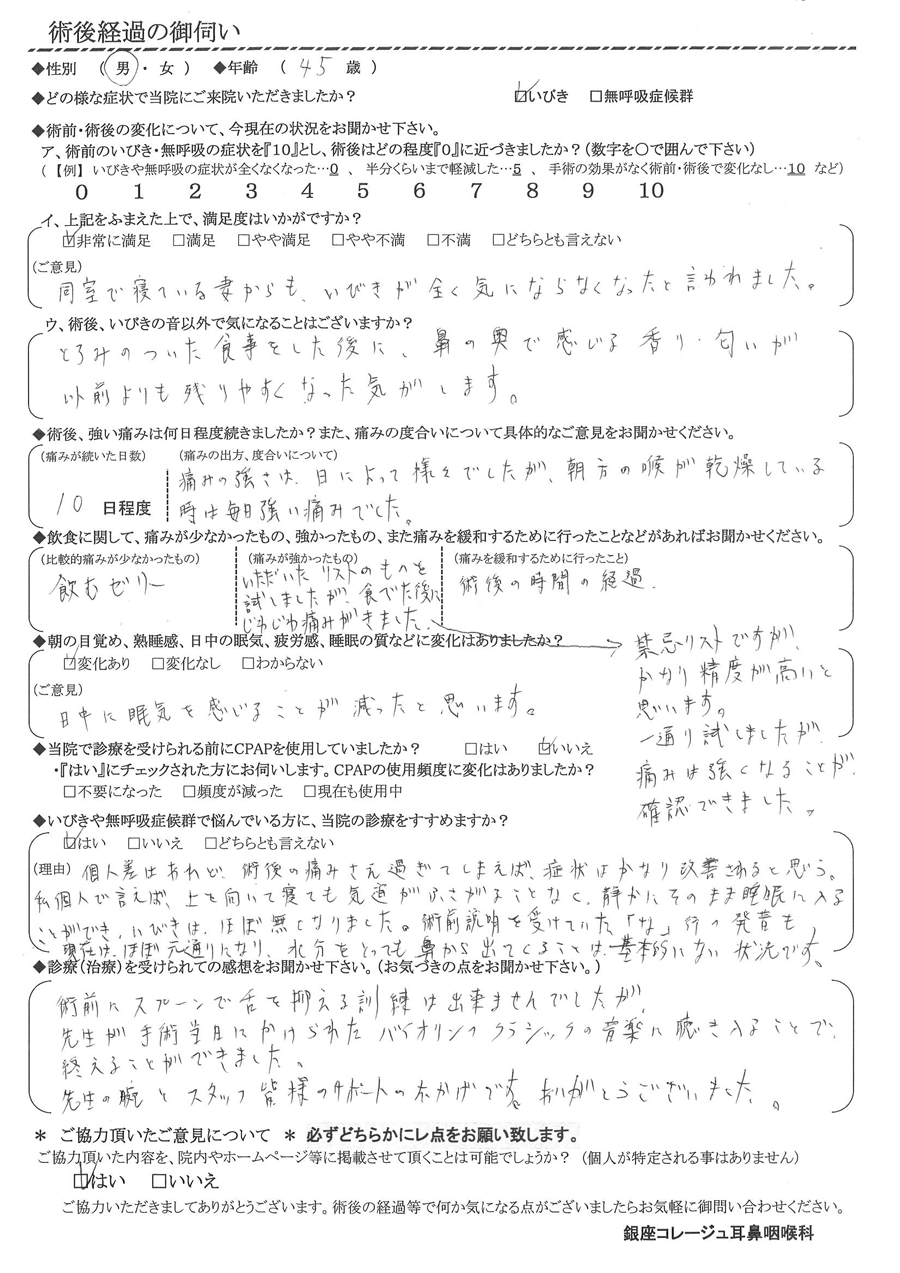 術後経過の御伺い
◆性別 （ 男 ・ 女 ） ◆年齢 （ 45 歳 ）
◆どの様な症状で当院にご来院いただきましたか？ ☑いびき □無呼吸症候群
◆術前・術後の変化について、今現在の状況をお聞かせ下さい。
ア、術前のいびき・無呼吸の症状を『10』とし、術後はどの程度『0』に近づきましたか？（数字を〇で囲んで下さい）
（【例】 いびきや無呼吸の症状が全くなくなった…0 、 半分くらいまで軽減した…5 、 手術の効果がなく術前・術後で変化なし…10 など）
0 1 2 3 4 5 6 7 8 9 10
イ、上記をふまえた上で、満足度はいかがですか？
☑非常に満足 □満足 □やや満足 □やや不満 □不満 □どちらとも言えない
（ご意見）
同室で寝ている妻からも、いびきが全く気にならなくなったと言われました。
ウ、術後、いびきの音以外で気になることはございますか？
とろみのついた食事をした後に、鼻の奥で感じる香り・匂いが
以前よりも残りやすくなった気がします。
◆術後、強い痛みは何日程度続きましたか？また、痛みの度合いについて具体的なご意見をお聞かせください。
（痛みが続いた日数） （痛みの出方、度合いについて）
痛みの強さは、日によって様々でしたが、朝方の喉が乾燥している
10 日程度 時は毎日強い痛みでした。
◆飲食に関して、痛みが少なかったもの、強かったもの、また痛みを緩和するために行ったことなどがあればお聞かせください。
（比較的痛みが少なかったもの） （痛みが強かったもの） （痛みを緩和するために行ったこと）
飲むゼリー
いただいたリストのものを
試しましたが、食べた後に
じわじわ痛みがきました。
術後の時間の経過
禁忌リストですが、
かなり精度が高いと
思います。
一通り試しましたが、
痛みは強くなることが、
確認できました。
◆朝の目覚め、熟睡感、日中の眠気、疲労感、睡眠の質などに変化はありましたか？
☑変化あり □変化なし □わからない
（ご意見）
日中に眠気を感じることが減ったと思います。
◆当院で診療を受けられる前にCPAPを使用していましたか？ □はい ☑いいえ
・『はい』にチェックされた方にお伺いします。CPAPの使用頻度に変化はありましたか？
□不要になった □頻度が減った □現在も使用中
◆いびきや無呼吸症候群で悩んでいる方に、当院の診療をすすめますか？
☑はい □いいえ □どちらとも言えない
（理由） 個人差はあれど、術後の痛みさえ過ぎてしまえば、症状はかなり改善されると思う。
私個人で言えば、上を向いて寝ても気道がふさがることなく、静かにそのまま睡眠に入る
ことができ、いびきは、ほぼ無くなりました。術前説明を受けていた「な」行の発音も
現在は、ほぼ元通りになり、水分をとっても鼻から出てくることは、基本的にない状況です。
◆診療（治療）を受けられての感想をお聞かせ下さい。（お気づきの点をお聞かせ下さい。）
術前にスプーンで舌を抑える訓練は出来ませんでしたが、
先生が手術当日にかけられたバイオリンクラシックの音楽に聴き入ることで、
終えることができました。
先生の腕とスタッフ皆様のサポートのおかげです。ありがとうございました。
＊ ご協力頂いたご意見について ＊ 必ずどちらかにレ点をお願い致します。
ご協力頂いた内容を、院内やホームページ等に掲載させて頂くことは可能でしょうか？ （個人が特定される事はありません）
☑はい □いいえ
ご協力いただきましてありがとうございます。術後の経過等で何か気になる点がございましたらお気軽に御問い合わせください。
銀座コレージュ耳鼻咽喉科